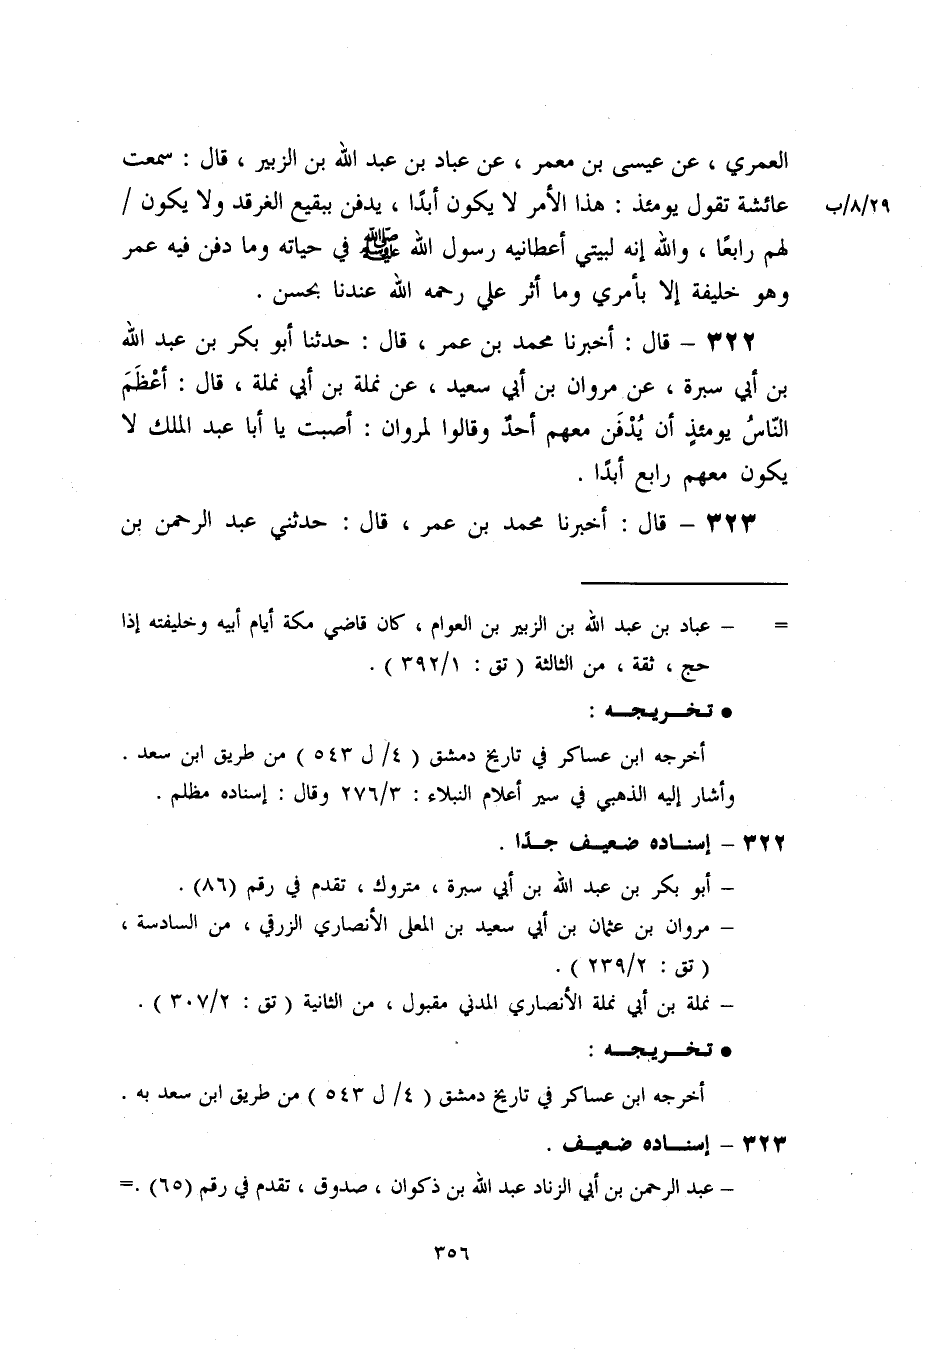 العمري ، عن عيسى بن معمر ، عن عباد بن عبد الله بن الزبير ، قال : سمعت
عائشة تقول يومئذ : هذا الأمر لا يكون أبدًا ، يدفن ببقيع الغرقد ولا يكون / ٨/٢٩/ب
لهم رابعًا ، والله إنه لبيتي أعطانيه رسول الله ﷺ في حياته وما دفن فيه عمر
وهو خليفة إلا بأمري وما أثر علي رحمه الله عندنا بحسن .
٣٢٢ – قال : أخبرنا محمد بن عمر ، قال : حدثنا أبو بكر بن عبد الله
بن أبي سبرة ، عن مروان بن أبي سعيد ، عن نملة بن أبي نملة ، قال : أعْظَمَ
النّاسُ يومئذٍ أن يُدْفَن معهم أحدٌ وقالوا لمروان : أصبت يا أبا عبد الملك لا
يكون معهم رابع أبدًا .
٣٢٣ – قال : أخبرنا محمد بن عمر ، قال : حدثني عبد الرحمن بن
= – عباد بن عبد الله بن الزبير بن العوام ، كان قاضي مكة أيام أبيه وخليفته إذا
حج ، ثقة ، من الثالثة ( تق : ٣٩٢/١ ) .
● تـخـــريـجـــه :
أخرجه ابن عساكر في تاريخ دمشق ( ٤/ ل ٥٤٣ ) من طريق ابن سعد .
وأشار إليه الذهبي في سير أعلام النبلاء : ٢٧٦/٣ وقال : إسناده مظلم .
٣٢٢ – إسنــاده ضعيــف جــدًا .
– أبو بكر بن عبد الله بن أبي سبرة ، متروك ، تقدم في رقم (٨٦) .
– مروان بن عثمان بن أبي سعيد بن المعلى الأنصاري الزرقي ، من السادسة ،
( تق : ٢٣٩/٢ ) .
– نملة بن أبي نملة الأنصاري المدني مقبول ، من الثانية ( تق : ٣٠٧/٢ ) .
● تـخـــريـجـــه :
أخرجه ابن عساكر في تاريخ دمشق ( ٤/ ل ٥٤٣ ) من طريق ابن سعد به .
٣٢٣ – إسنــاده ضعيــف .
– عبد الرحمن بن أبي الزناد عبد الله بن ذكوان ، صدوق ، تقدم في رقم (٦٥) .=
٣٥٦